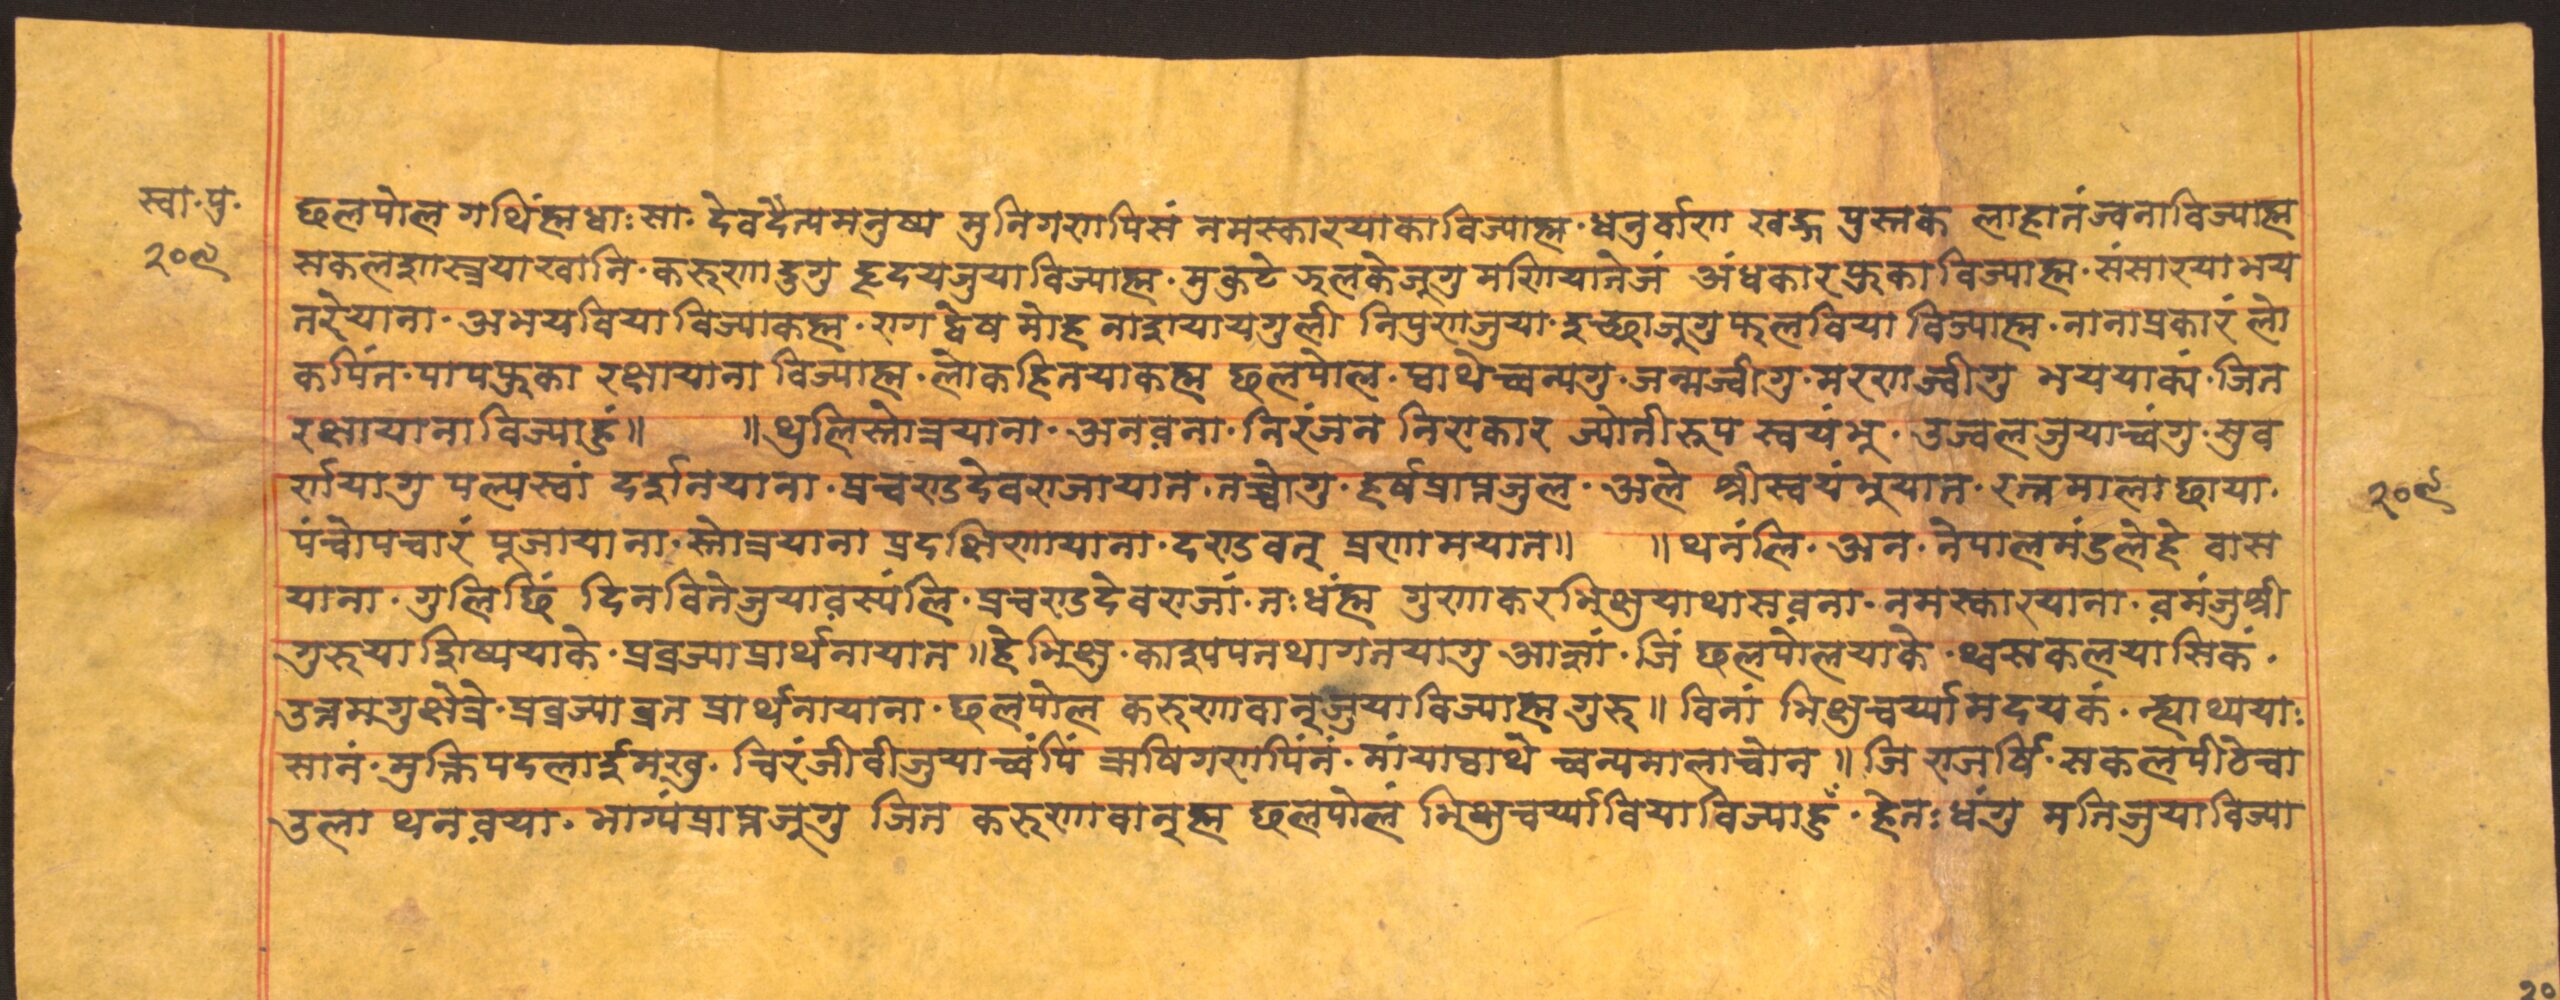 स्वा·पु·
२०९
छलपोल गथिंह्मधाःसा· देवदैत्यमनुष्य मुनिगणपिसं नमस्कारयाकाविज्याह्म·धनुर्वाण खड्ग पुस्तक लाहातंज्वनाविज्याह्म
सकलशास्त्रयाखानि·करुणादुगु हृदयजुयाविज्याह्म·मुकुटे ञुलकेजुगु मणियातेजं अंधकारफुकाविज्याह्म·संसारयाभय
तरेयाना·अभयवियाविज्याकह्म·राग द्वेष मोह नाशयायगुली निपुणजुया·इच्छाजुगुफलविया विज्याह्म·नानाप्रकारं लो
कपिंत·पापफुका रक्षायाना विज्याह्म·लोकहितयाकह्म छलपोल·म्वाथेच्वन्यगु·जन्मज्वीगु·मरणज्वीगु भययाक्यं·जित
रक्षायानाविज्याहुं॥ ॥थुलिस्तोत्रयाना·अनव़ना·निरंजन निराकार ज्योतीरूप स्वयंभु·उज्वलजुयाच्वंगु·सुव
र्णयागु पल्यस्वां दर्शनयाना·प्रचण्डदेवराजायात·तच्वोगु·हर्षप्राप्तजुल·अले श्रीस्वयंभुयात·रत्नमाला छाया·
पंचोपचारं पूजायाना·स्तोत्रयाना प्रदक्षिणायाना·दण्डवत् प्रणामयात॥ ॥थनंलि·अन·नेपालमंडलेहे वास
याना·गुलिछिं दिनवितेजुयाव़स्यंलि·प्रचण्डदेवराजां·तःधंह्म गुणाकरभिक्षुयाथासव़ना·नमस्कारयाना·व़मंजुश्री
गुरुयाशिष्ययाके·प्रव्रज्याप्रार्थनायात॥हे भिक्षु·काश्यपतथागतयागु आज्ञां·जिं छलपोलयाके·थ्वसकलयासिकं·
उत्तमगुक्षेत्रे·प्रव्रज्याव्रत प्रार्थनायाना·छलपोल करुणावान्जुयाविज्याह्मगुरु॥विनां भिक्षुचर्य्या मदयकं·न्ह्याथ्ययाः
सानं·मुक्तिपदलाईमखु·चिरंजीवीजुयाच्वंपिं ऋषिगणपिंनं·मांयाप्वाथे च्वन्यमालाचोन॥जि राजर्षि·सकलपीठेचा
उला थनव़या·भाग्यंप्राप्तजुगु जित करुणावान्ह्म छलपोलं भिक्षुचर्य्यावियाविज्याहुँ·हेतःधंगु मतिजुयाविज्या
२०९